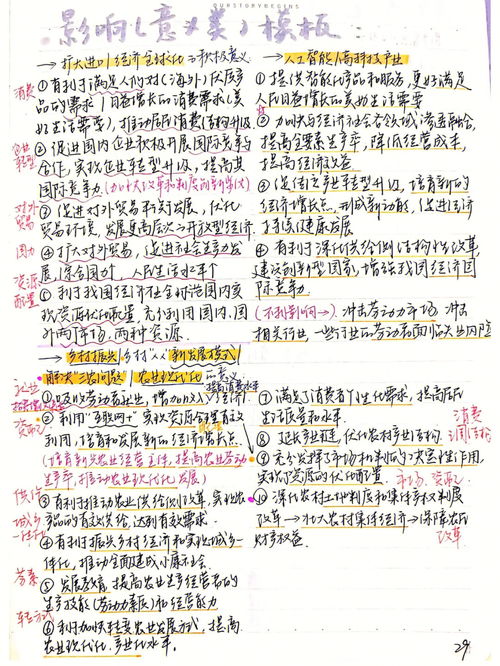 OURSTORYBEGINS
影响(意义类)模板
→ 扩大进口/经济全球化 的积极意义
消费
① 有利于满足人们对(海外)优质产
品的需求/日益增长的消费需求(美
好生活需要),推动居民消费结构升级
企业
转型
② 促进国内企业积极开展国际竞争与
合作,实现企业转型升级,提高其
国际竞争力
对外
贸易
③ 促进对外贸易平衡发展,优化
贸易环境,发展更高层次的开放型经济
国力
④ 扩大对外贸易,促进社会生产力发
展,综合国力↑,人民生活水平↑
资源
配置
⑤ 利于我国经济在全球范围内实
现资源优化配置,充分利用国内、国
外两个市场、两种资源.
→ 人工智能/高新科技产业
① 提供智能化产品和服务,更好满足
人民日益增长的美好生活需要
② 加大与经济社会各领域渗透融合,
提高全要素生产率,降低经营成本,
提高经济效益
③ 促传统产业转型升级,培育新的
经济增长点,形成新动能,促进经济
持续健康发展
④ 有利于深化供给侧结构性改革,
建设创新型国家,增强我国经济国
际竞争力
(不利影响→)冲击劳动力市场 冲击
相关行业,一些行业的劳动者面临失业风险
→ 乡村振兴 乡村"" 新发展模式/
解决"三农问题"/农业现代化 的意义
提高消费水平
就业
① 吸收劳动者就业,增加收入
资配
② 利用"互联网+"实现资源合理有效
利用,培育和发展新的经济增长点
(培育新兴农业经营主体,提高农业劳动
生产率,推动农业现代化发展)
供给
③ 有利于推动农业供给侧改革,实现农
产品的有效供给,达到有效需求.
城乡
一体化
④ 有利于振兴乡村经济和实现城乡一
体化,推动全面建成小康社会.
劳素
⑤ 发展教育,提高农业生产经营者的
生产技能(劳动力素质)和经营能力
转方式
⑥ 利于加快转变农业发展方式,提高
农业现代化、产业化水平。
⑦ 满足了消费者个性化需求,提高居民
生活质量和水平.
消费
⑧ 延长产业链,优化农村产业结构.
调结构
⑨ 充分发挥了市场和利的决定性作用,
实现了资源的优化配置. 市场、资配
⑩ 深化农村土地制度和集体产权制度
改革→壮大农村集体经济→保障农民
财产权益.
改革
29